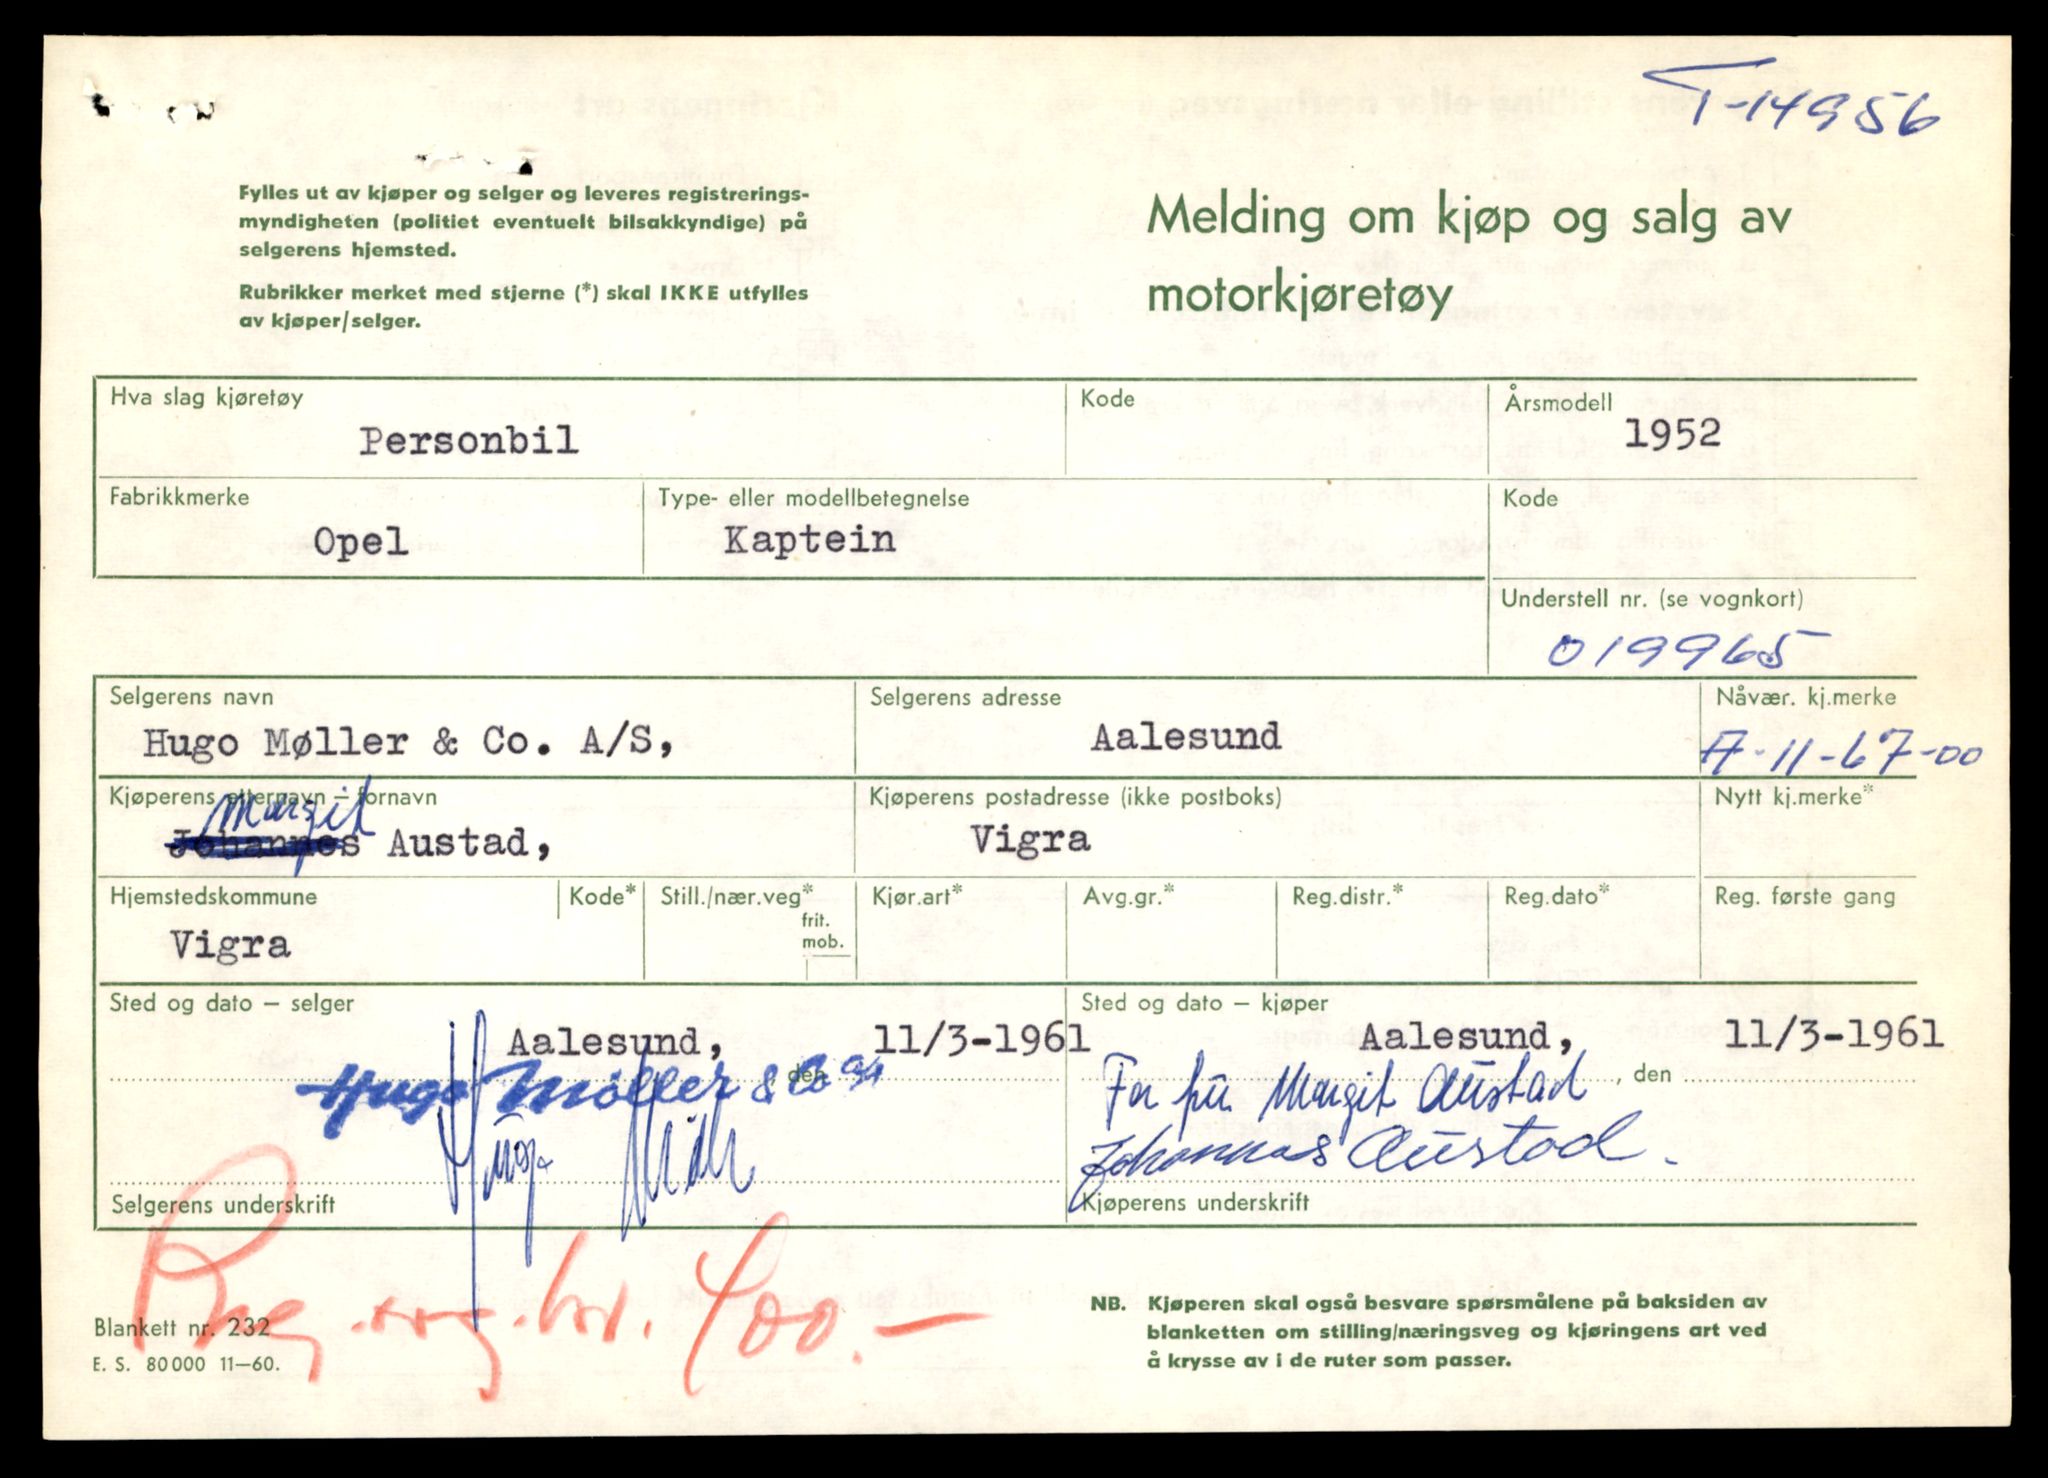 T-14956
Fylles ut av kjøper og selger og leveres registrerings-
myndigheten (politiet eventuelt bilsakkyndige) på
selgerens hjemsted.
Rubrikker merket med stjerne (*) skal IKKE utfylles
av kjøper/selger.
Melding om kjøp og salg av
motorkjøretøy
Hva slag kjøretøy Kode Årsmodell
Personbil 1952
Fabrikkmerke Type- eller modellbetegnelse Kode
Opel Kaptein
Understell nr. (se vognkort)
019965
Selgerens navn Selgerens adresse Nåvær. kj.merke
Hugo Møller & Co. A/S, Aalesund A-11-67-00
Kjøperens etternavn – fornavn Kjøperens postadresse (ikke postboks) Nytt kj.merke*
Margit
Johannes Austad, Vigra
Hjemstedskommune Kode* Still./nær.veg* Kjør.art* Avg.gr.* Reg.distr.* Reg.dato* Reg. første gang
frit.
mob.
Vigra
Sted og dato – selger Sted og dato – kjøper
Aalesund, 11/3-1961 Aalesund, 11/3-1961
, den , den
Hugo Møller & Co A/S For fru Margit Austad
Hugo Johannes Austad.
Selgerens underskrift Kjøperens underskrift
Reg. avg. kr. 600.—
Blankett nr. 232
E. S. 80000 11—60.
NB. Kjøperen skal også besvare spørsmålene på baksiden av
blanketten om stilling/næringsveg og kjøringens art ved
å krysse av i de ruter som passer.